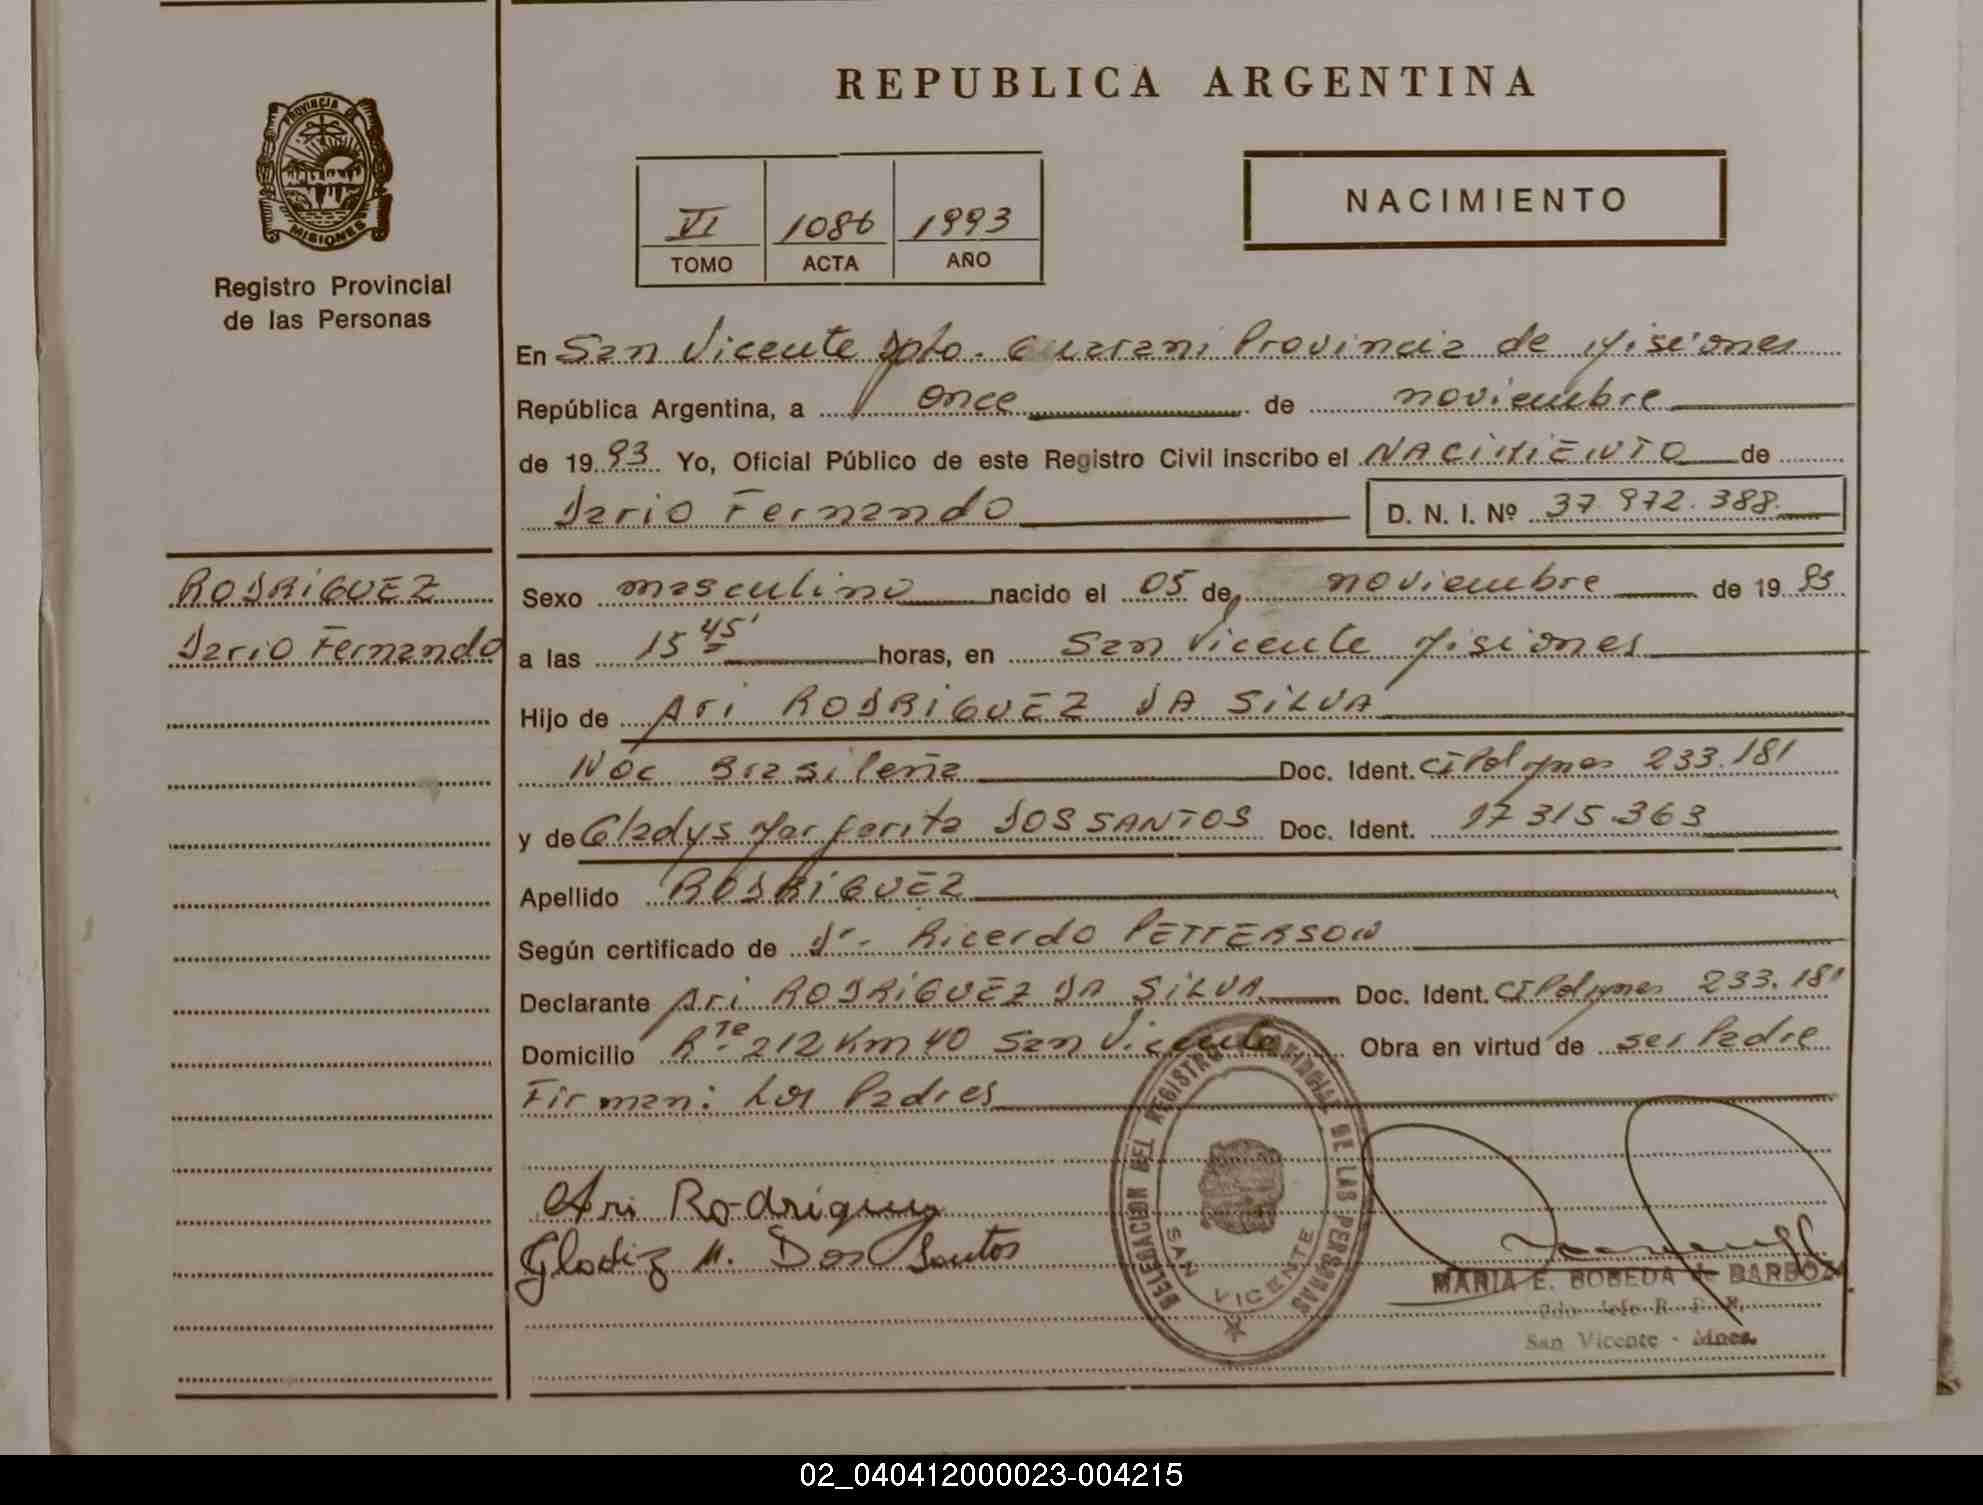 REPUBLICA ARGENTINA
PROVINCIA DE
MISIONES
Registro Provincial
de las Personas
VI 1086 1993
TOMO ACTA AÑO
NACIMIENTO
En San Vicente Dpto. Guarani Provincia de Misiones
República Argentina, a once de noviembre
de 1993 Yo, Oficial Público de este Registro Civil inscribo el NACIMIENTO de
Dario Fernando D. N. I. Nº 37.972.388
RODRIGUEZ
Dario Fernando
Sexo masculino nacido el 05 de noviembre de 1993
a las 15 45' horas, en San Vicente Misiones
Hijo de Ari RODRIGUEZ DA SILVA
Nac Brasileña Doc. Ident. CI Pol 233.181
y de Gladys Margarita DOS SANTOS Doc. Ident. 17.315.363
Apellido RODRIGUEZ
Según certificado de Dr. Ricardo PETTERSON
Declarante Ari RODRIGUEZ DA SILVA Doc. Ident. CI Pol 233.181
Domicilio Rta 212 Km 40 San Vicente Obra en virtud de ser Padre
Firman: Los Padres
Ari Rodriguez
Gladiz M. Dos Santos
DELEGACION DEL REGISTRO PROVINCIAL DE LAS PERSONAS
SAN VICENTE
MARIA E. BOBEDA de BARBOZA
San Vicente - Mnes.
02_040412000023-004215